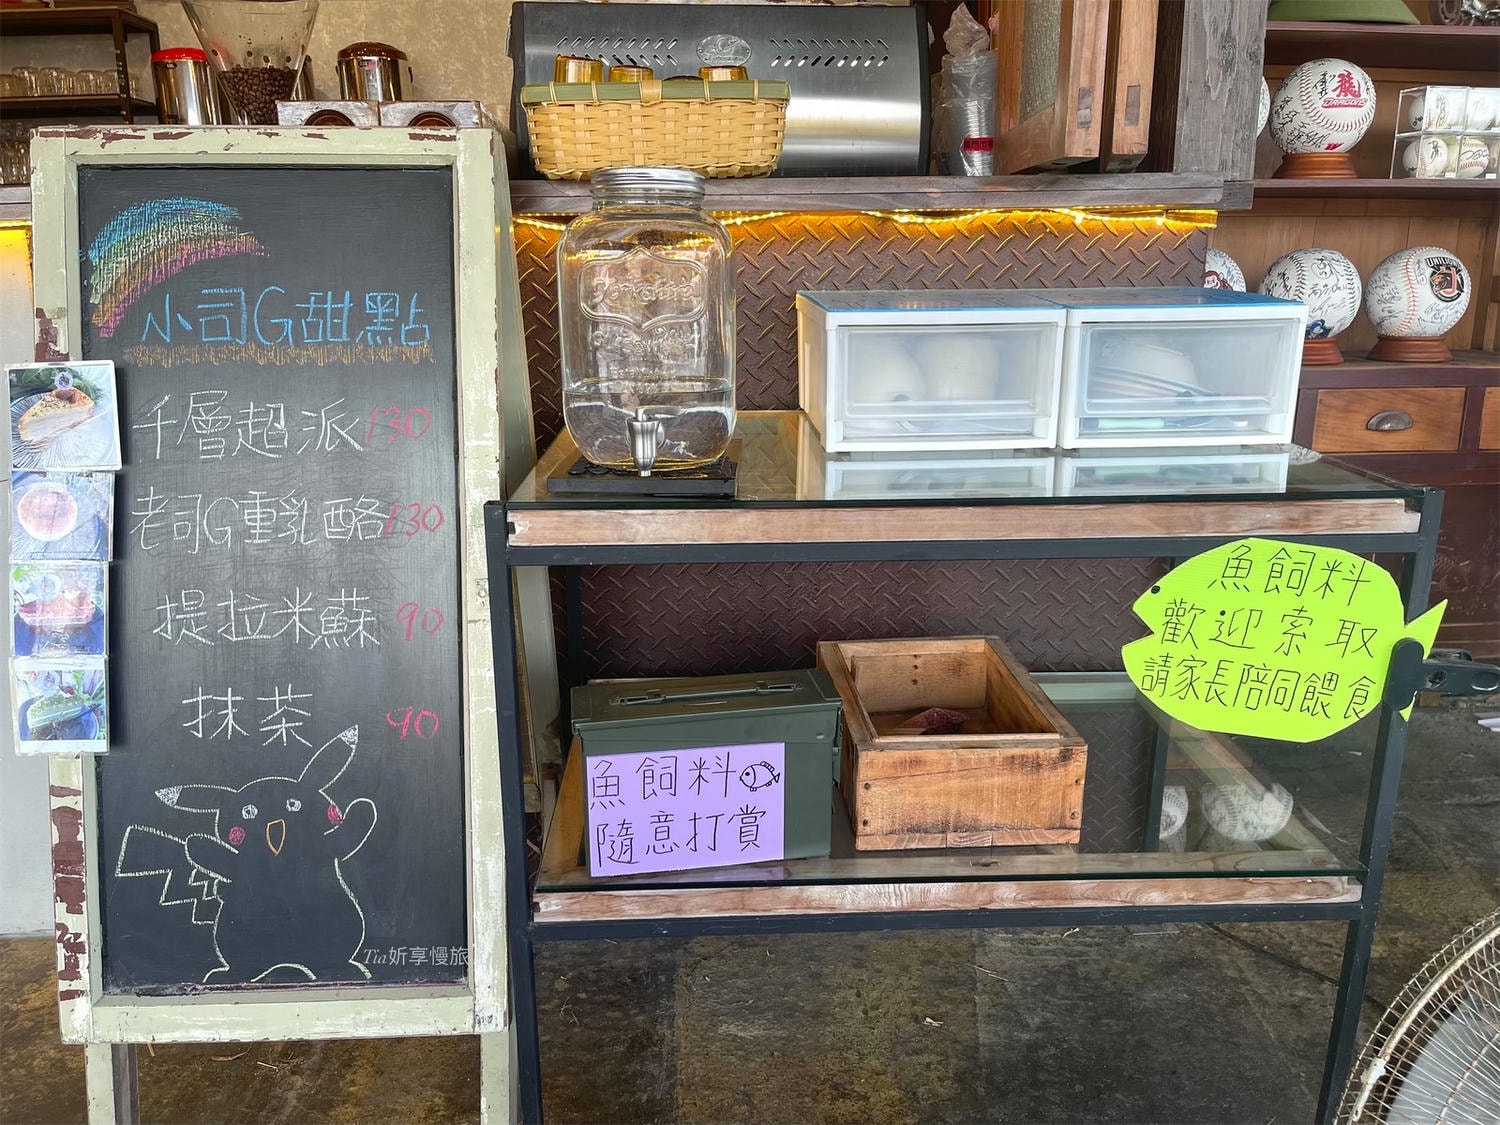 小司G甜點
千層超派 130
老司G重乳酪 130
提拉米蘇 90
抹茶 90
Tia妡享慢旅
魚飼料
隨意打賞
魚飼料
歡迎索取
請家長陪同餵食
龍
DRAGONS
UNI
Yorkshire